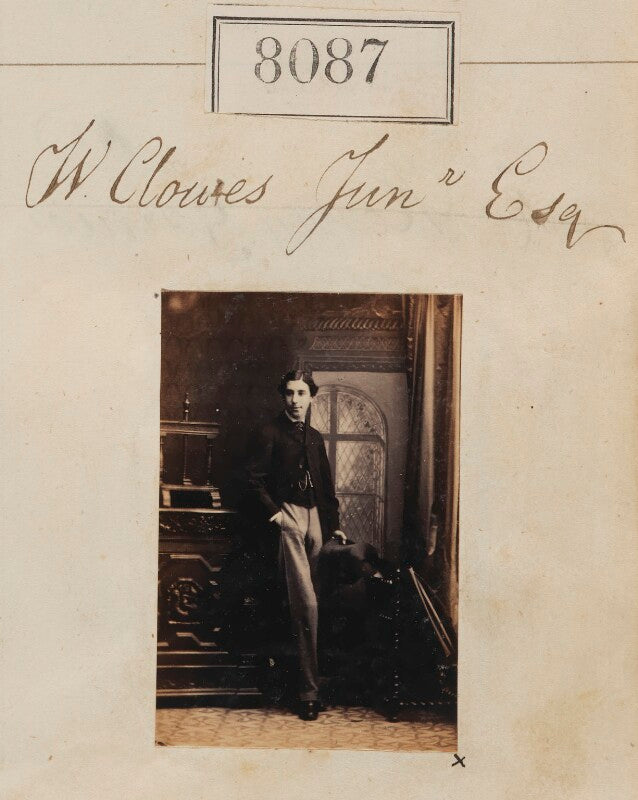 8087
W. Clowes Junr Esq
x